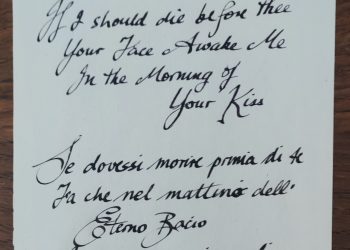 If I should die before thee
Your Face Awake Me
In the Morning of
Your Kiss
Se dovessi morire prima di te
Fa che nel mattino dell'
Eterno Bacio